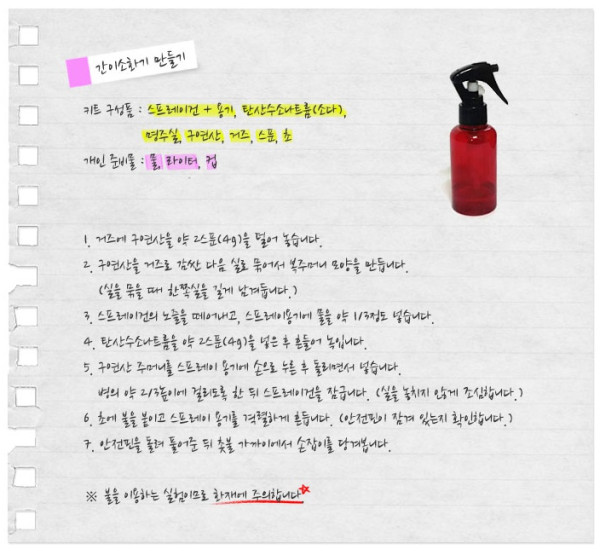 간이소화기 만들기
키트 구성품 : 스프레이건 + 용기, 탄산수소나트륨(소다),
명주실, 구연산, 거즈, 스푼, 초
개인 준비물 : 물, 라이터, 컵
1. 거즈에 구연산을 약 2스푼(4g)을 덜어 놓습니다.
2. 구연산을 거즈로 감싼 다음 실로 묶어서 복주머니 모양을 만듭니다.
(실을 묶을 때 한쪽실을 길게 남겨둡니다.)
3. 스프레이건의 노즐을 떼어내고, 스프레이용기에 물을 약 1/3정도 넣습니다.
4. 탄산수소나트륨을 약 2스푼(4g)을 넣은 후 흔들어 녹입니다.
5. 구연산 주머니를 스프레이 용기에 손으로 누른 후 돌리면서 넣습니다.
병의 약 2/3높이에 걸리도록 한 뒤 스프레이건을 잠급니다. (실을 놓치지 않게 조심합니다.)
6. 초에 불을 붙이고 스프레이 용기를 격렬하게 흔듭니다. (안전핀이 잠겨 있는지 확인합니다.)
7. 안전핀을 돌려 풀어준 뒤 촛불 가까이에서 손잡이를 당겨봅니다.
※ 불을 이용하는 실험이므로 화재에 주의합니다